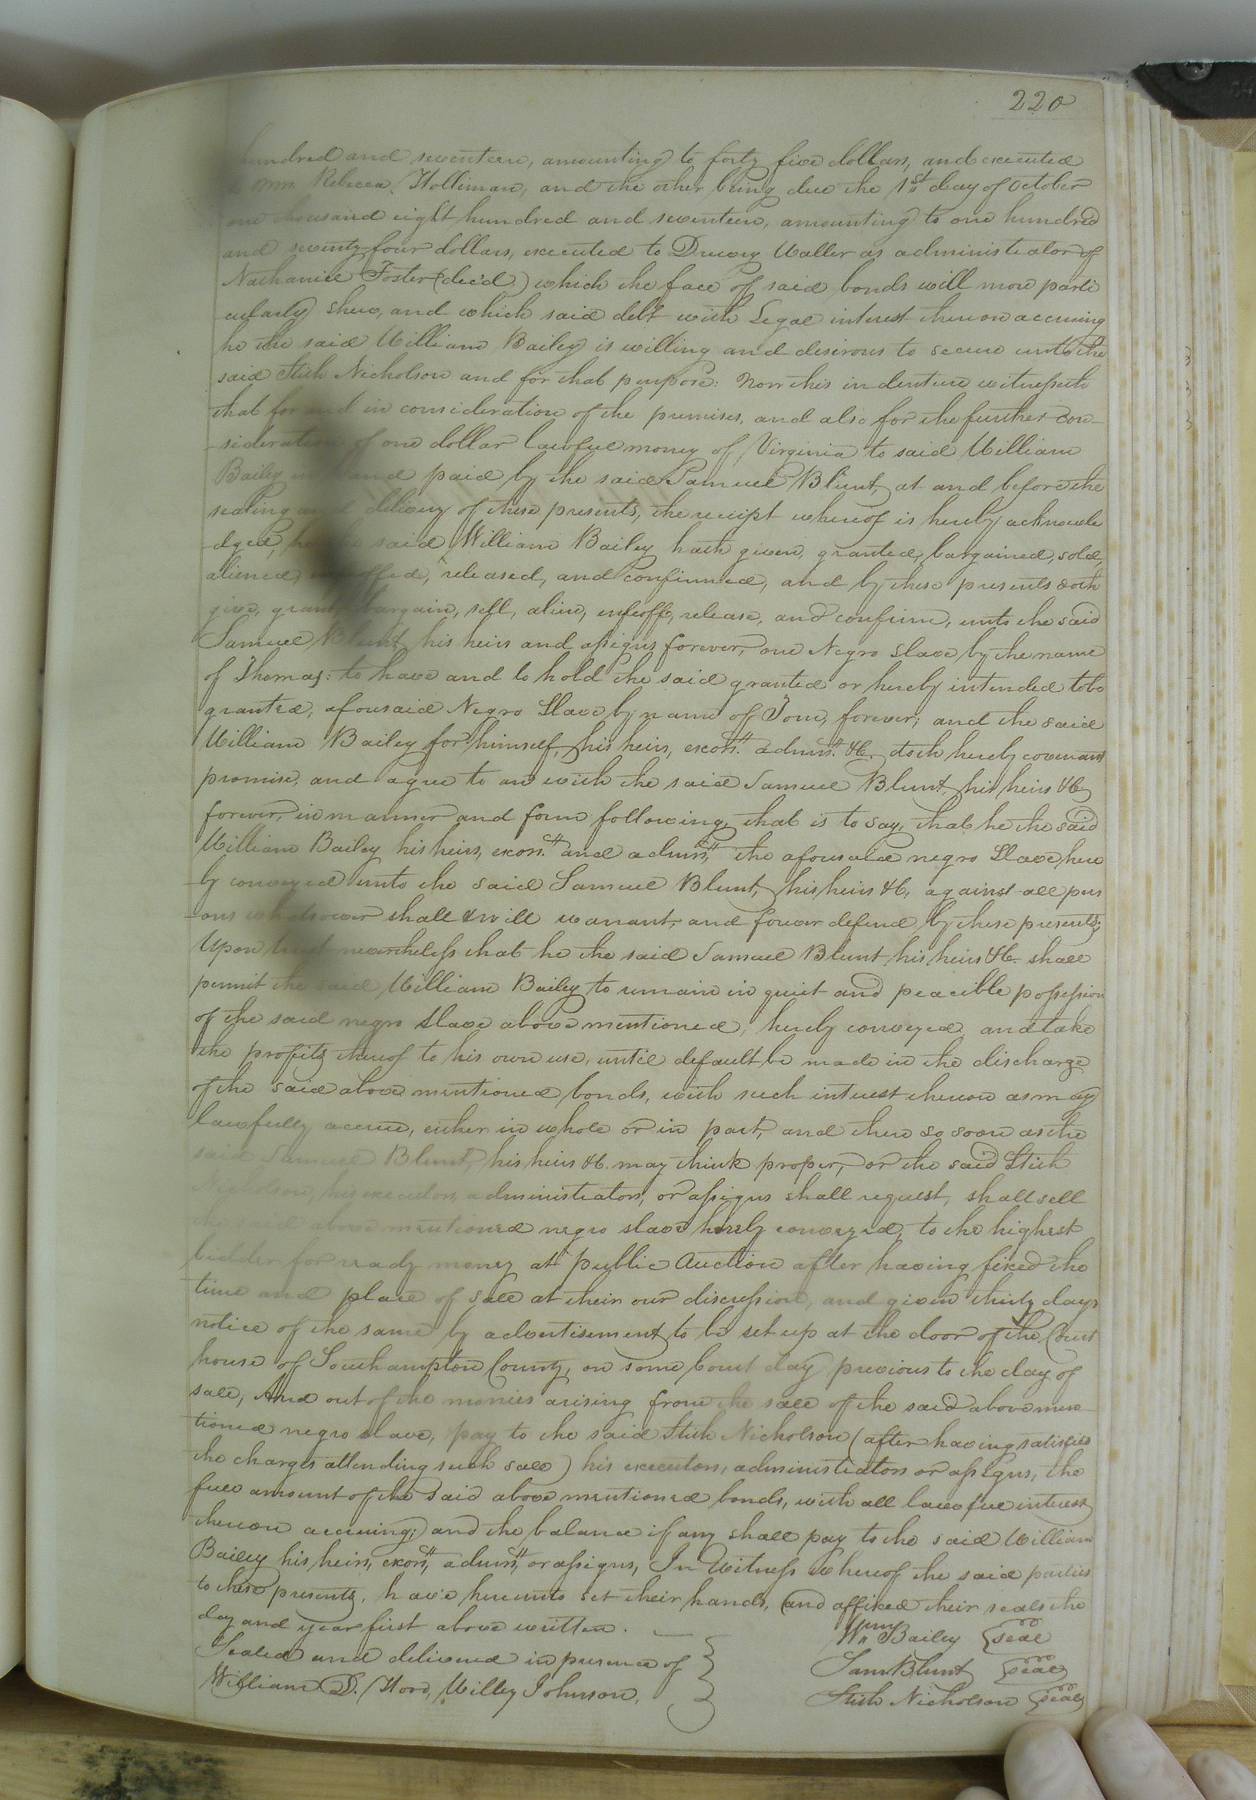 220
hundred and seventeen, amounting to forty five dollars, and executed
Mrs. Rebecca Holliman, and the other being due the 1st day of October
one thousand eight hundred and seventeen, amounting to one hundred
and seventy four dollars, executed to Drewry Waller as administrator of
Nathaniel Foster (dec'd) which the face of said bonds will more parti
cularly shew, and which said debt with Legal interest thereon accruing
he the said William Bailey is willing and desirous to secure unto the
said Stith Nicholson and for that purpose: Now this indenture witnesseth
that for and in consideration of the premises, and also for the further con-
-sideration of one dollar lawful money of Virginia to said William
Bailey in hand paid by the said Samuel Blunt, at and before the
sealing and delivery of these presents, the receipt whereof is hereby acknowle
-dged, he the said William Bailey hath given, granted, bargained, sold,
aliened, enfeoffed, released, and confirmed, and by these presents doth
give, grant, bargain, sell, alien, enfeoff, release, and confirm, unto the said
Samuel Blunt, his heirs and assigns forever, one Negro Slave by the name
of Thomas: to have and to hold the said granted or hereby intended to be
granted, aforesaid Negro Slave by name of Tom, forever; and the said
William Bailey for himself, his heirs, exors. admrs. &c. doth hereby covenant
promise, and agree to an with the said Samuel Blunt, his heirs &c
forever, in manner and form following, that is to say, that he the said
William Bailey his heirs, exors. and admrs, the aforesaid negro Slave, here
by conveyed unto the said Samuel Blunt, his heirs &c, against all pers
-ons whatsoever shall & will warrant and forever defend by these presents;
Upon trust nevertheless that he the said Samuel Blunt, his heirs &c. shall
permit the said William Bailey to remain in quiet and peacible possession
of the said negro slave above mentioned, hereby conveyed, and take
the profits thereof to his own use, until default be made in the discharge
of the said above mentioned bonds, with such interest thereon as may
lawfully accrue, either in whole or in part, and then so soon as the
said Samuel Blunt, his heirs &c. may think proper, or the said Stith
Nicholson, his executors, administrators, or assigns shall request, shall sell
the said above mentioned negro slave hereby conveyed, to the highest
bidder for ready money at public Auction after having fixed the
time and place of sale at their our discression, and given thirty days
notice of the same by advertisement to be set up at the door of the Court
house of Southampton County, on some Court day previous to the day of
sale, And out of the monies arising from the sale of the said above men-
tioned negro slave, pay to the said Stith Nicholson (after having satisfied
the charges attending such sale) his executors, administrators or assigns, the
full amount of the said above mentioned bonds, with all lawful interest
thereon accruing; and the balance if any shall pay to the said William
Bailey his heirs, exors, admrs, or assigns, In Witness whereof the said parties
to these presents, have hereunto set their hands, and affixed their seals the
day and year first above written.
Wm Bailey {seal
Sealed and delivered in presence of
Sam Blunt {seal}
William D. Hood, Willey Johnson,
Stith Nicholson {seal}